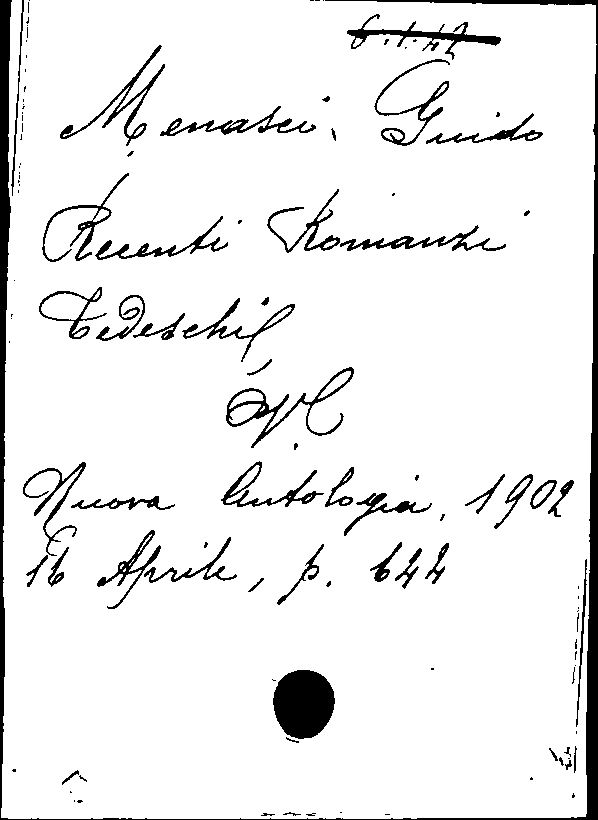 6.1.42
Menasci, Guido
Recenti Romanzi
Tedeschi
Nuova Antologia, 1902
16 Aprile, p. 644